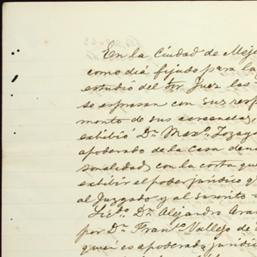 En la Ciudad de Meji
como dia fijado para la
estudio del Sr. Juez los
se espresan con sus resp
monto de sus
exhibió Dn. Mar.
apoderado de la casa
sonalidad, con la carta que
exhibir el poder jurídico q
al Juzgado y al suscrito
Licdo. Dn. Alejandro Ara
por Dn. Franco. Vallejo de
quien es apoderado jurídico